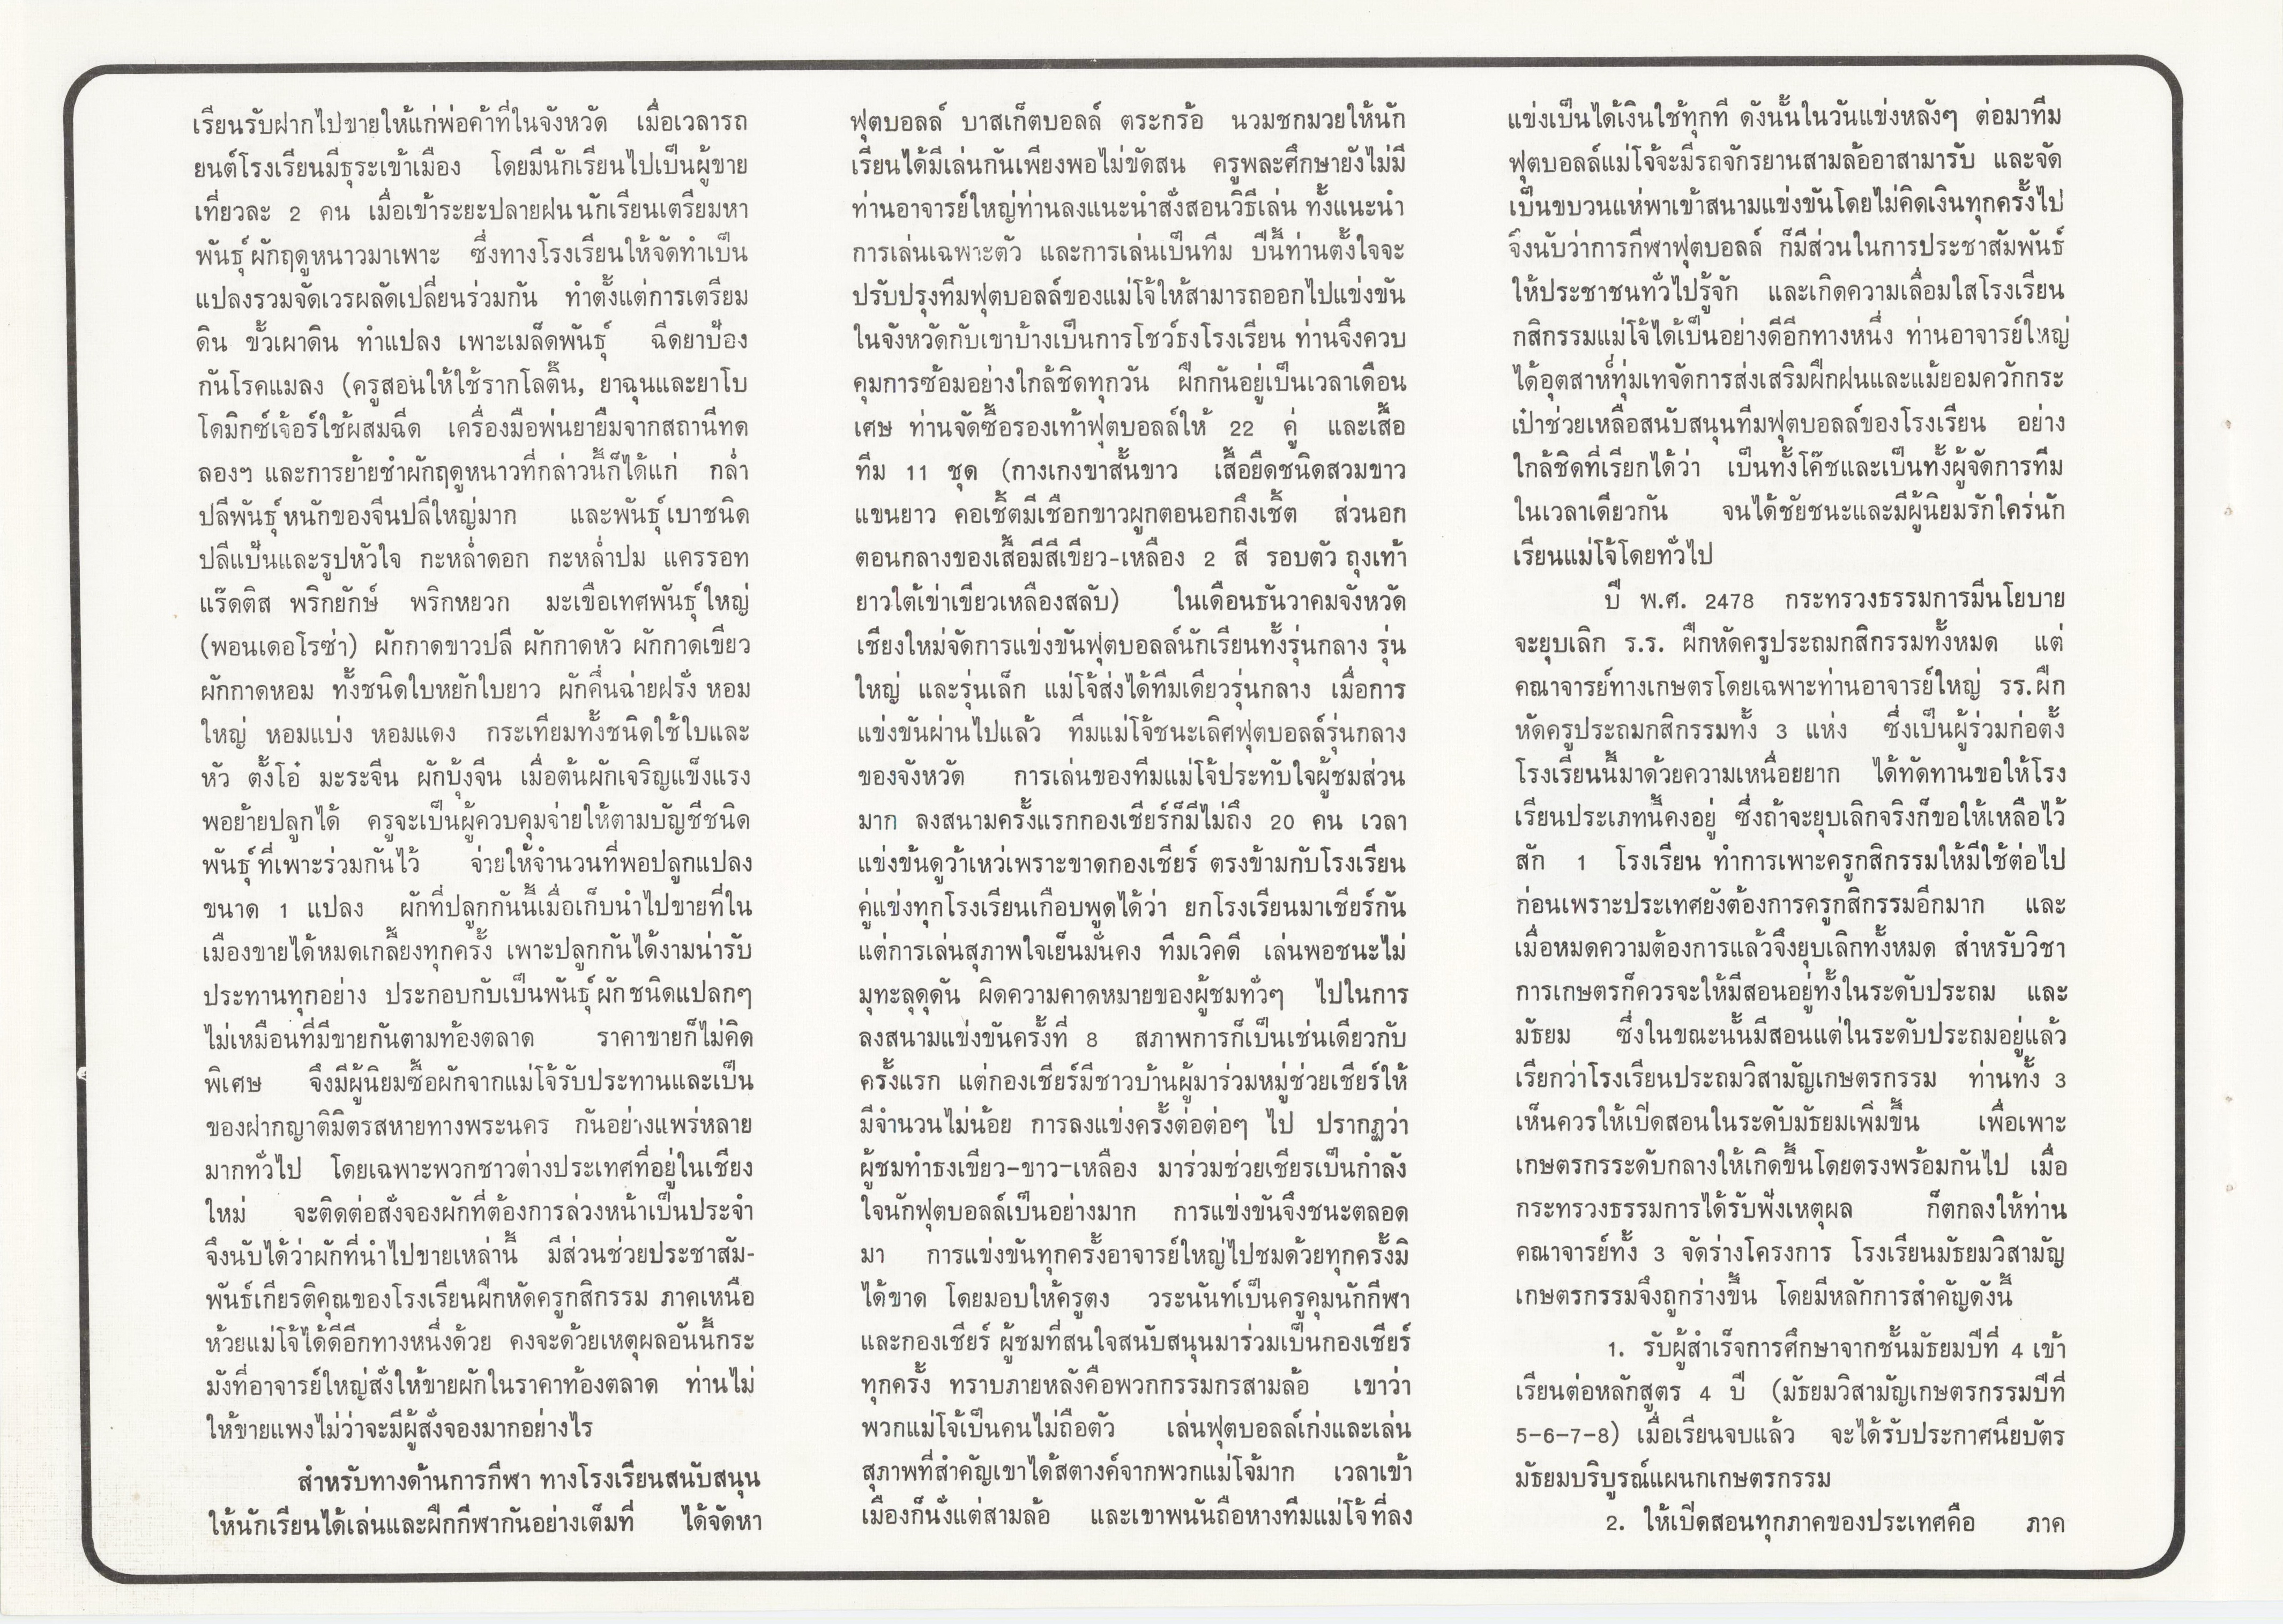 เรียนรับฝากไปขายให้แก่พ่อค้าที่ในจังหวัด เมื่อเวลารถ
ยนต์โรงเรียนมีธุระเข้าเมือง โดยมีนักเรียนไปเป็นผู้ขาย
เที่ยวละ 2 คน เมื่อเข้าระยะปลายฝน นักเรียนเตรียมหา
พันธุ์ผักฤดูหนาวมาเพาะ ซึ่งทางโรงเรียนให้จัดทำเป็น
แปลงรวมจัดเวรผลัดเปลี่ยนร่วมกัน ทำตั้งแต่การเตรียม
ดิน ขั้วเผาดิน ทำแปลง เพาะเมล็ดพันธุ์ ฉีดยาป้อง
กันโรคแมลง (ครูสอนให้ใช้รากโลติ๊น, ยาฉุนและยาโบ
โดมิกซ์เจ้อร์ใช้ผสมฉีด เครื่องมือพ่นยายืมจากสถานีทด
ลองฯ และการย้ายชำผักฤดูหนาวที่กล่าวนี้ก็ได้แก่ กล่ำ
ปลีพันธุ์หนักของจีนปลีใหญ่มาก และพันธุ์เบาชนิด
ปลีแป้นและรูปหัวใจ กะหล่ำดอก กะหล่ำปม แครรอท
แร๊ดติส พริกยักษ์ พริกหยวก มะเขือเทศพันธุ์ใหญ่
(พอนเดอโรซ่า) ผักกาดขาวปลี ผักกาดหัว ผักกาดเขียว
ผักกาดหอม ทั้งชนิดใบหยักใบยาว ผักคื่นฉ่ายฝรั่ง หอม
ใหญ่ หอมแบ่ง หอมแดง กระเทียมทั้งชนิดใช้ใบและ
หัว ตั้งโอ๋ มะระจีน ผักบุ้งจีน เมื่อต้นผักเจริญแข็งแรง
พอย้ายปลูกได้ ครูจะเป็นผู้ควบคุมจ่ายให้ตามบัญชีชนิด
พันธุ์ที่เพาะร่วมกันไว้ จ่ายให้จำนวนที่พอปลูกแปลง
ขนาด 1 แปลง ผักที่ปลูกกันนี้เมื่อเก็บนำไปขายที่ใน
เมืองขายได้หมดเกลี้ยงทุกครั้ง เพาะปลูกกันได้งามน่ารับ
ประทานทุกอย่าง ประกอบกับเป็นพันธุ์ผักชนิดแปลกๆ
ไม่เหมือนที่มีขายกันตามท้องตลาด ราคาขายก็ไม่คิด
พิเศษ จึงมีผู้นิยมซื้อผักจากแม่โจ้รับประทานและเป็น
ของฝากญาติมิตรสหายทางพระนคร กันอย่างแพร่หลาย
มากทั่วไป โดยเฉพาะพวกชาวต่างประเทศที่อยู่ในเชียง
ใหม่ จะติดต่อสั่งจองผักที่ต้องการล่วงหน้าเป็นประจำ
จึงนับได้ว่าผักที่นำไปขายเหล่านี้ มีส่วนช่วยประชาสัม-
พันธ์เกียรติคุณของโรงเรียนฝึกหัดครูกสิกรรม ภาคเหนือ
ห้วยแม่โจ้ได้ดีอีกทางหนึ่งด้วย คงจะด้วยเหตุผลอันนี้กระ
มังที่อาจารย์ใหญ่สั่งให้ขายผักในราคาท้องตลาด ท่านไม่
ให้ขายแพงไม่ว่าจะมีผู้สั่งจองมากอย่างไร
สำหรับทางด้านการกีฬา ทางโรงเรียนสนับสนุน
ให้นักเรียนได้เล่นและฝึกกีฬากันอย่างเต็มที่ ได้จัดหา
ฟุตบอลล์ บาสเก็ตบอลล์ ตระกร้อ นวมชกมวยให้นัก
เรียนได้มีเล่นกันเพียงพอไม่ขัดสน ครูพละศึกษายังไม่มี
ท่านอาจารย์ใหญ่ท่านลงแนะนำสั่งสอนวิธีเล่น ทั้งแนะนำ
การเล่นเฉพาะตัว และการเล่นเป็นทีม ปีนี้ท่านตั้งใจจะ
ปรับปรุงทีมฟุตบอลล์ของแม่โจ้ให้สามารถออกไปแข่งขัน
ในจังหวัดกับเขาบ้างเป็นการโชว์ธงโรงเรียน ท่านจึงควบ
คุมการซ้อมอย่างใกล้ชิดทุกวัน ฝึกกันอยู่เป็นเวลาเดือน
เศษ ท่านจัดซื้อรองเท้าฟุตบอลล์ให้ 22 คู่ และเสื้อ
ทีม 11 ชุด (กางเกงขาสั้นขาว เสื้อยืดชนิดสวมขาว
แขนยาว คอเชิ้ตมีเชือกขาวผูกตอนอกถึงเชิ้ต ส่วนอก
ตอนกลางของเสื้อมีสีเขียว-เหลือง 2 สี รอบตัว ถุงเท้า
ยาวใต้เข่าเขียวเหลืองสลับ) ในเดือนธันวาคมจังหวัด
เชียงใหม่จัดการแข่งขันฟุตบอลล์นักเรียนทั้งรุ่นกลาง รุ่น
ใหญ่ และรุ่นเล็ก แม่โจ้ส่งได้ทีมเดียวรุ่นกลาง เมื่อการ
แข่งขันผ่านไปแล้ว ทีมแม่โจ้ชนะเลิศฟุตบอลล์รุ่นกลาง
ของจังหวัด การเล่นของทีมแม่โจ้ประทับใจผู้ชมส่วน
มาก ลงสนามครั้งแรกกองเชียร์ก็มีไม่ถึง 20 คน เวลา
แข่งขันดูว้าเหว่เพราะขาดกองเชียร์ ตรงข้ามกับโรงเรียน
คู่แข่งทุกโรงเรียนเกือบพูดได้ว่า ยกโรงเรียนมาเชียร์กัน
แต่การเล่นสุภาพใจเย็นมั่นคง ทีมเวิคดี เล่นพอชนะไม่
มุทะลุดุดัน ผิดความคาดหมายของผู้ชมทั่วๆ ไปในการ
ลงสนามแข่งขันครั้งที่ 8 สภาพการก็เป็นเช่นเดียวกับ
ครั้งแรก แต่กองเชียร์มีชาวบ้านผู้มาร่วมหมู่ช่วยเชียร์ให้
มีจำนวนไม่น้อย การลงแข่งครั้งต่อต่อๆ ไป ปรากฏว่า
ผู้ชมทำธงเขียว-ขาว-เหลือง มาร่วมช่วยเชียรเป็นกำลัง
ใจนักฟุตบอลล์เป็นอย่างมาก การแข่งขันจึงชนะตลอด
มา การแข่งขันทุกครั้งอาจารย์ใหญ่ไปชมด้วยทุกครั้งมิ
ได้ขาด โดยมอบให้ครูตง วระนันท์เป็นครูคุมนักกีฬา
และกองเชียร์ ผู้ชมที่สนใจสนับสนุนมาร่วมเป็นกองเชียร์
ทุกครั้ง ทราบภายหลังคือพวกกรรมกรสามล้อ เขาว่า
พวกแม่โจ้เป็นคนไม่ถือตัว เล่นฟุตบอลล์เก่งและเล่น
สุภาพที่สำคัญเขาได้สตางค์จากพวกแม่โจ้มาก เวลาเข้า
เมืองก็นั่งแต่สามล้อ และเขาพนันถือหางทีมแม่โจ้ที่ลง
แข่งเป็นได้เงินใช้ทุกที ดังนั้นในวันแข่งหลังๆ ต่อมาทีม
ฟุตบอลล์แม่โจ้จะมีรถจักรยานสามล้ออาสามารับ และจัด
เป็นขบวนแห่พาเข้าสนามแข่งขันโดยไม่คิดเงินทุกครั้งไป
จึงนับว่าการกีฬาฟุตบอลล์ ก็มีส่วนในการประชาสัมพันธ์
ให้ประชาชนทั่วไปรู้จัก และเกิดความเลื่อมใสโรงเรียน
กสิกรรมแม่โจ้ได้เป็นอย่างดีอีกทางหนึ่ง ท่านอาจารย์ใหญ่
ได้อุตสาห์ทุ่มเทจัดการส่งเสริมฝึกฝนและแม้ยอมควักกระ
เป๋าช่วยเหลือสนับสนุนทีมฟุตบอลล์ของโรงเรียน อย่าง
ใกล้ชิดที่เรียกได้ว่า เป็นทั้งโค๊ชและเป็นทั้งผู้จัดการทีม
ในเวลาเดียวกัน จนได้ชัยชนะและมีผู้นิยมรักใคร่นัก
เรียนแม่โจ้โดยทั่วไป
ปี พ.ศ. 2478 กระทรวงธรรมการมีนโยบาย
จะยุบเลิก ร.ร. ฝึกหัดครูประถมกสิกรรมทั้งหมด แต่
คณาจารย์ทางเกษตรโดยเฉพาะท่านอาจารย์ใหญ่ รร.ฝึก
หัดครูประถมกสิกรรมทั้ง 3 แห่ง ซึ่งเป็นผู้ร่วมก่อตั้ง
โรงเรียนนี้มาด้วยความเหนื่อยยาก ได้ทัดทานขอให้โรง
เรียนประเภทนี้คงอยู่ ซึ่งถ้าจะยุบเลิกจริงก็ขอให้เหลือไว้
สัก 1 โรงเรียน ทำการเพาะครูกสิกรรมให้มีใช้ต่อไป
ก่อนเพราะประเทศยังต้องการครูกสิกรรมอีกมาก และ
เมื่อหมดความต้องการแล้วจึงยุบเลิกทั้งหมด สำหรับวิชา
การเกษตรก็ควรจะให้มีสอนอยู่ทั้งในระดับประถม และ
มัธยม ซึ่งในขณะนั้นมีสอนแต่ในระดับประถมอยู่แล้ว
เรียกว่าโรงเรียนประถมวิสามัญเกษตรกรรม ท่านทั้ง 3
เห็นควรให้เปิดสอนในระดับมัธยมเพิ่มขึ้น เพื่อเพาะ
เกษตรกรระดับกลางให้เกิดขึ้นโดยตรงพร้อมกันไป เมื่อ
กระทรวงธรรมการได้รับฟังเหตุผล ก็ตกลงให้ท่าน
คณาจารย์ทั้ง 3 จัดร่างโครงการ โรงเรียนมัธยมวิสามัญ
เกษตรกรรมจึงถูกร่างขึ้น โดยมีหลักการสำคัญดังนี้
1. รับผู้สำเร็จการศึกษาจากชั้นมัธยมปีที่ 4 เข้า
เรียนต่อหลักสูตร 4 ปี (มัธยมวิสามัญเกษตรกรรมปีที่
5-6-7-8) เมื่อเรียนจบแล้ว จะได้รับประกาศนียบัตร
มัธยมบริบูรณ์แผนกเกษตรกรรม
2. ให้เปิดสอนทุกภาคของประเทศคือ ภาค